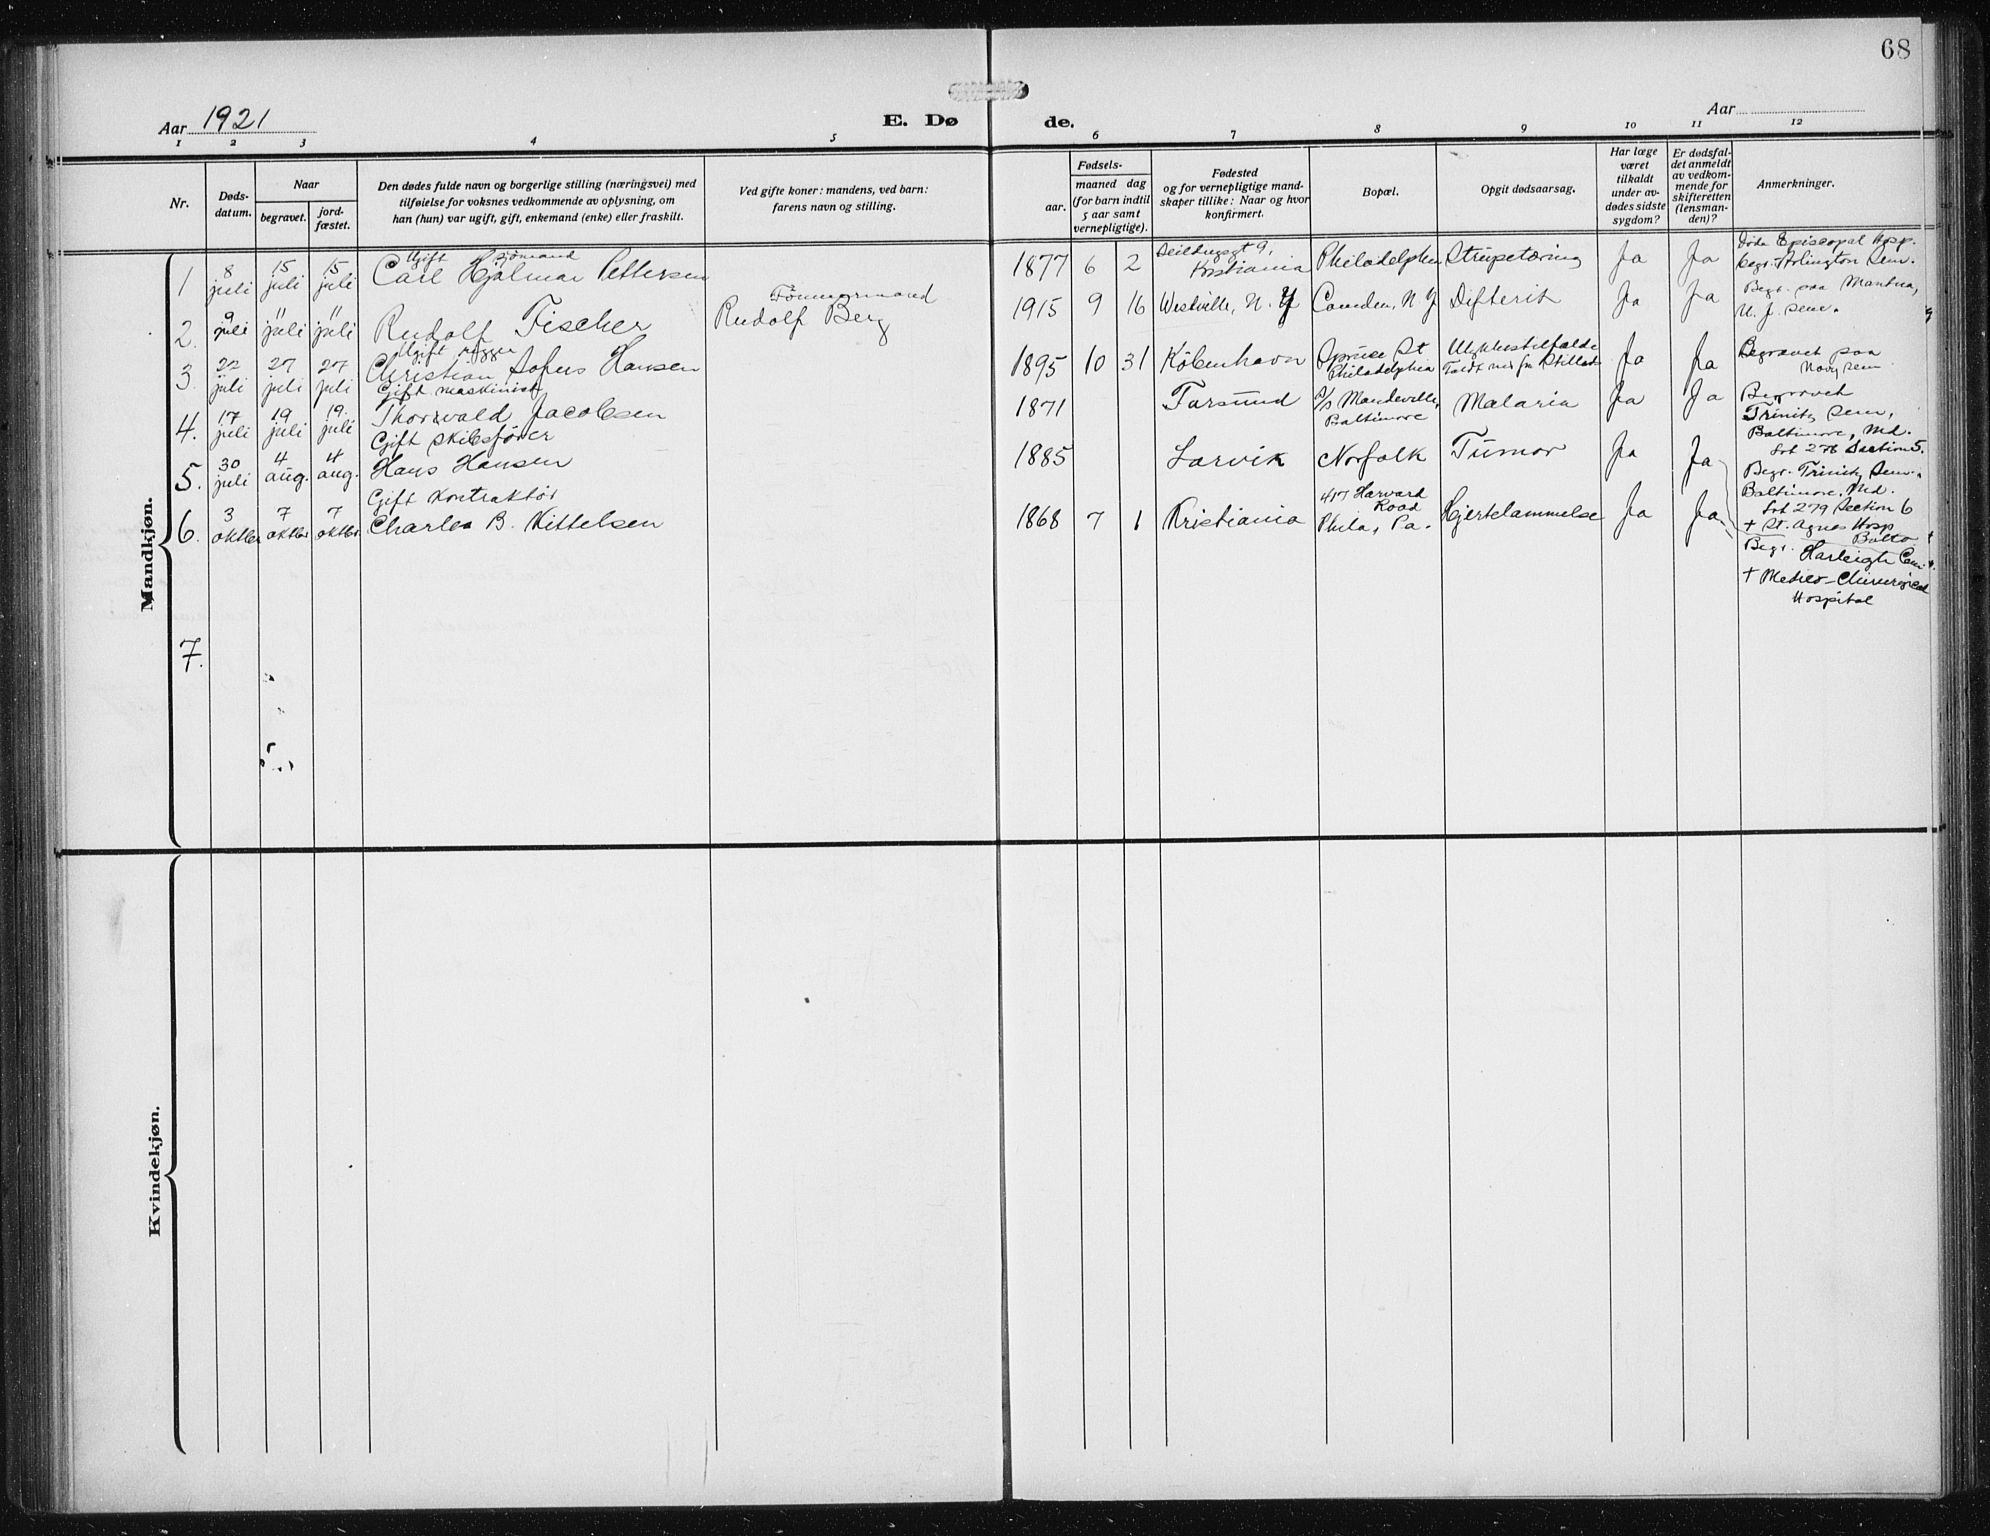 68
Aar 1921
E. Døde.
Aar
1 2 3 4 5 6 7 8 9 10 11 12
Nr.
Døds-
datum.
Naar
begravet.
jord-
fæstet.
Den dødes fulde navn og borgerlige stilling (næringsvei) med
tilføielse for voksnes vedkommende av oplysning, om
han (hun) var ugift, gift, enkemand (enke) eller fraskilt.
Ved gifte koner: mandens, ved barn:
farens navn og stilling.
Fødsels-
aar.
maaned dag
(for barn indtil
5 aar samt
vernepligtige).
Fødested
og for vernepligtige mand-
skaper tillike: Naar og hvor
konfirmert.
Bopæl.
Opgit dødsaarsag.
Har læge
været
tilkaldt
under av-
dødes sidste
sygdom?
Er dødsfal-
det anmeldt
av vedkom-
mende for
skifteretten
(lensman-
den)?
Anmerkninger.
Mandkjøn.
1
8 juli
15 juli
15 juli
Ugift sjömand
Carl Hjalmar Pettersen
1877 6 2
Seildugsgt 9,
Kristiania
Philadelphia
Strupetæring
Ja
Ja
Døde Episcopal Hosp.
Begr. Arlington Sem.
2.
9 juli
11 juli
11 juli
Rudolf Fischer
Tömmermand
Rudolf Berg
1915 9 16
Westville, N. Y
Camden, N Y
Difterit
Ja
Ja
Begr. paa Mantua,
N. J. sem.
3.
22 juli
27 juli
27 juli
Ugift rigger
Christian Sofus Hansen
1895 10 31
København
Spruce St
Philadelphia
Ulykkestilfælde
Faldt ned fra Stillads
Ja
Ja
Begravet paa
Navy sem
4.
17 juli
19 juli
19. juli
Gift maskinist
Thorvald Jacobsen
1871
Farsund
S/S Mandeville,
Baltimore
Malaria
Ja
Ja
Begravet
Trinity Sem,
Baltimore, Md.
Lot 278 Section 5.
5.
30 juli
4 aug.
4 aug.
Gift skibsfører
Hans Hansen
1885
Larvik
Norfolk
Tumor
Ja
Ja
Begr. Trinity Sem.
Baltimore, Md.
Lot 279 Section 6
+ St. Agnes Hosp
Balto.
6.
3 oktbr
7 oktbr
7 oktbr
Gift Kontraktör
Charles B. Kittelsen
1868 7 1
Kristiania
417 Harvard
Road
Phila, Pa.
Hjertelammelse
Ja
Ja
Begr. Harleigh Cem.
+ Medico-Chirurgical
Hospital
7.
Kvindekjøn.